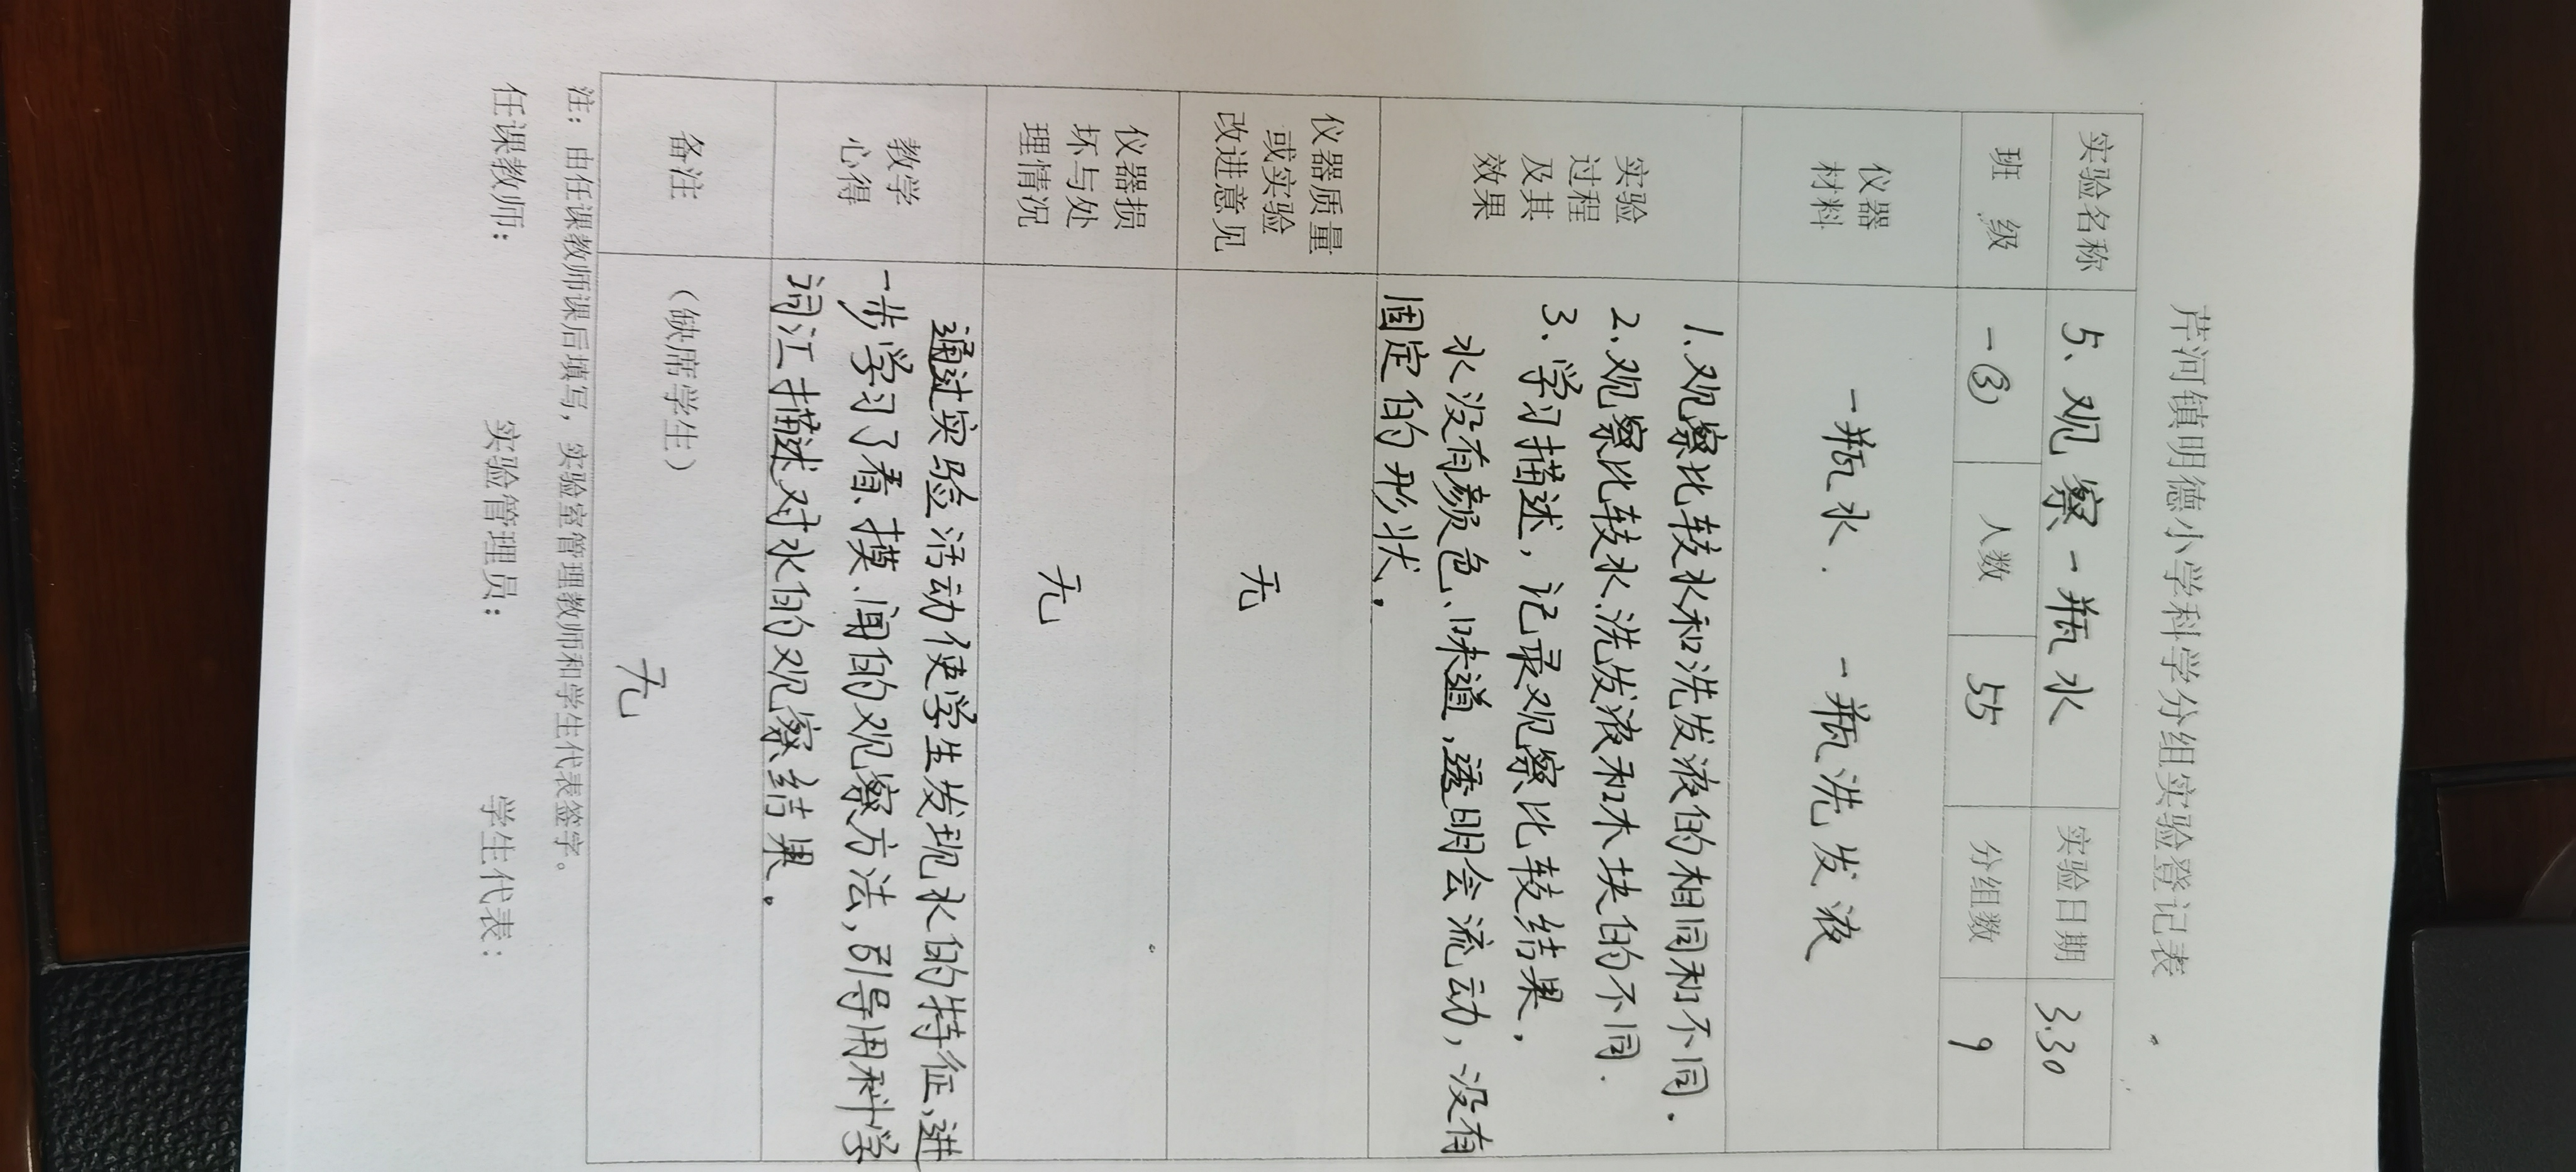 芹河镇明德小学科学分组实验登记表
实验名称 5、观察一瓶水 实验日期 3.30
班 级 一③ 人数 55 分组数 9
仪器
材料
一瓶水. 一瓶洗发液
实验
过程
及其
效果
1.观察比较水和洗发液的相同和不同.
2.观察比较水.洗发液和木块的不同.
3、学习描述,记录观察比较结果,
水没有颜色、味道,透明会流动,没有
固定的形状.
仪器质量
或实验
改进意见
无
仪器损
坏与处
理情况
无
教学
心得
通过实验活动使学生发现水的特征,进
一步学习了看、摸、闻的观察方法,引导用科学
词汇描述对水的观察结果.
备注
(缺席学生)
无
注:由任课教师课后填写,实验室管理教师和学生代表签字。
任课教师: 实验管理员: 学生代表: